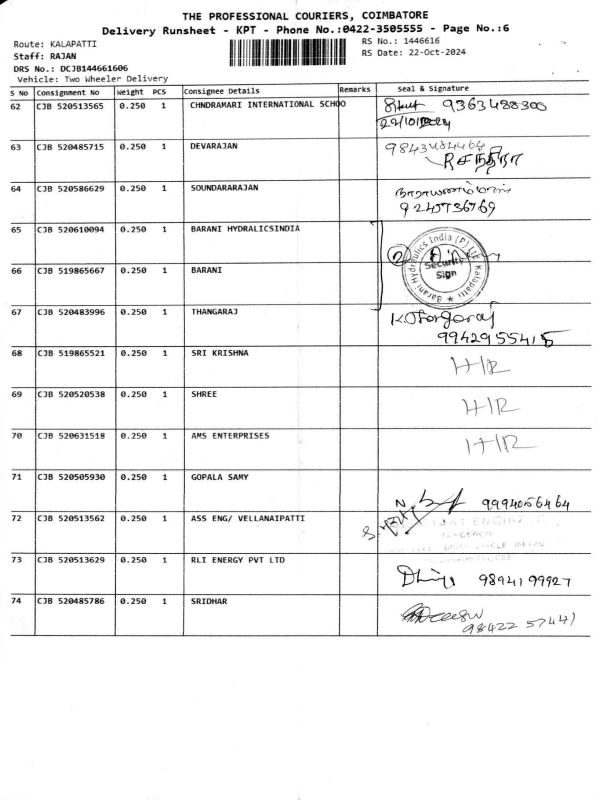 THE PROFESSIONAL COURIERS, COIMBATORE
Delivery Runsheet - KPT - Phone No.:0422-3505555 - Page No.:6
Route: KALAPATTI
RS No.: 1446616
Staff: RAJAN
RS Date: 22-Oct-2024
DRS No.: DCJB144661606
Vehicle: Two Wheeler Delivery
S No Consignment No Weight PCS Consignee Details Remarks Seal & Signature
62 CJB 520513565 0.250 1 CHNDRAMARI INTERNATIONAL SCHOO 9363488300
22/10/2024
63 CJB 520485715 0.250 1 DEVARAJAN 9843484464
64 CJB 520586629 0.250 1 SOUNDARARAJAN
65 CJB 520610094 0.250 1 BARANI HYDRALICSINDIA
Barani Hydraulics India (P) Ltd Kalapatti
Security
Sign
66 CJB 519865667 0.250 1 BARANI
67 CJB 520483996 0.250 1 THANGARAJ
9942955415
68 CJB 519865521 0.250 1 SRI KRISHNA H/R
69 CJB 520520538 0.250 1 SHREE H/R
70 CJB 520631518 0.250 1 AMS ENTERPRISES H/R
71 CJB 520505930 0.250 1 GOPALA SAMY 9994056464
72 CJB 520513562 0.250 1 ASS ENG/ VELLANAIPATTI
73 CJB 520513629 0.250 1 RLI ENERGY PVT LTD 9894199927
74 CJB 520485786 0.250 1 SRIDHAR
98422 57441